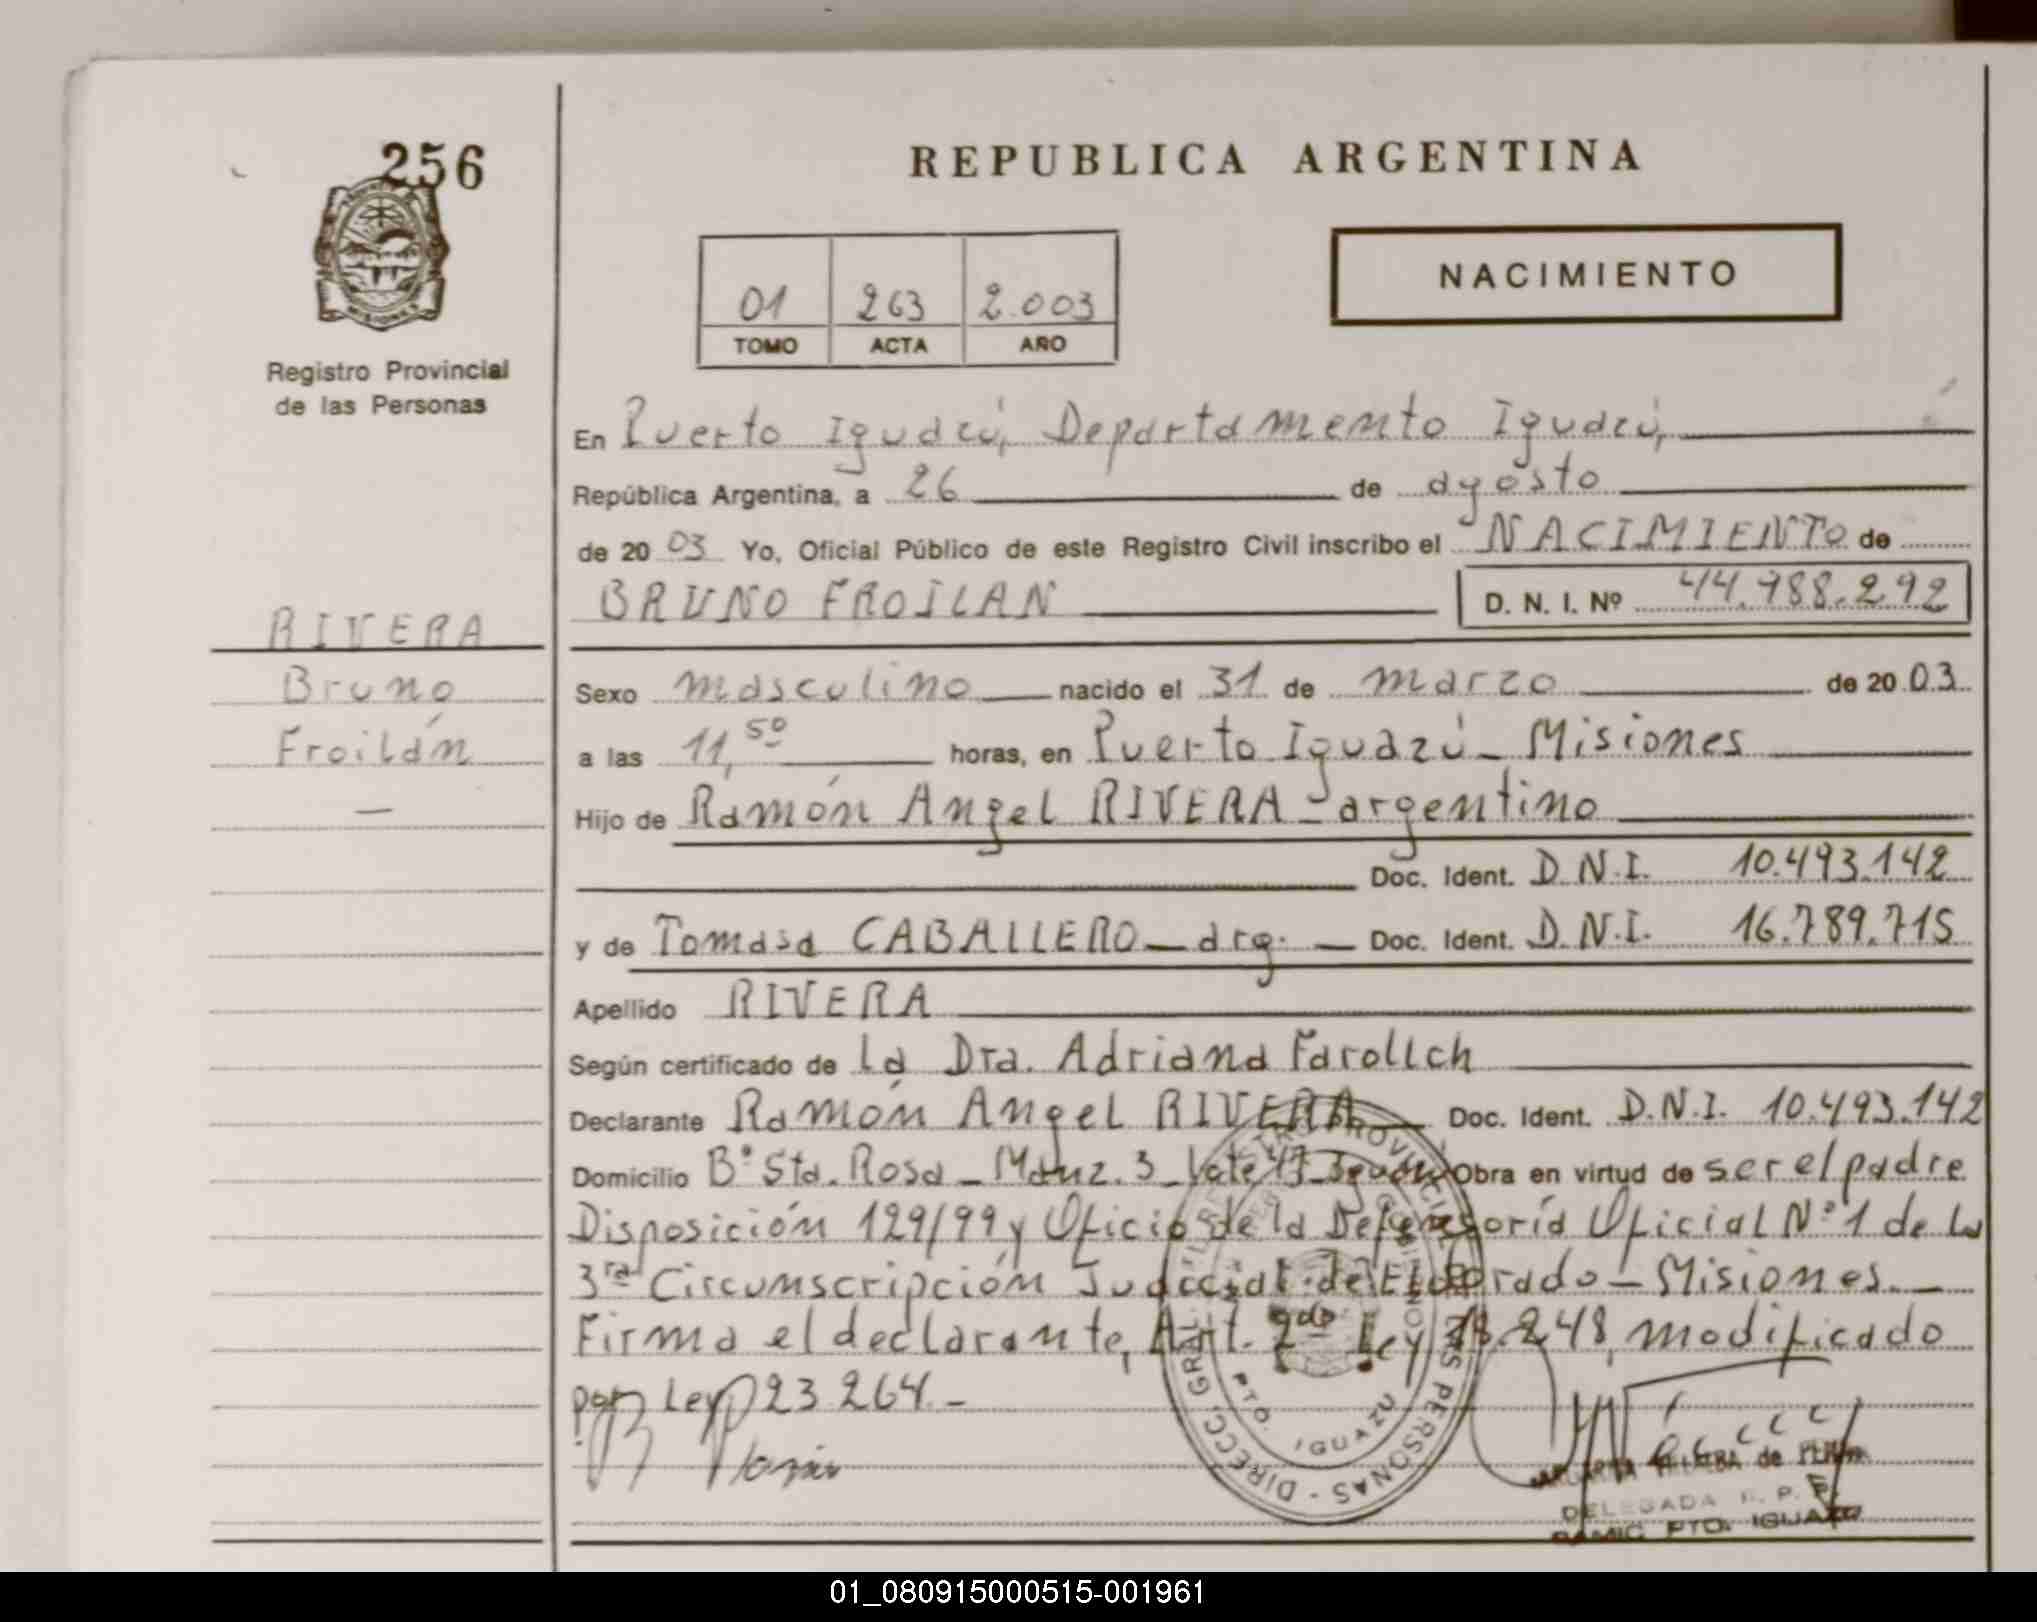 256
REPUBLICA ARGENTINA
NACIMIENTO
01 263 2.003
TOMO ACTA AÑO
Registro Provincial
de las Personas
En Puerto Iguazú, Departamento Iguazú,
República Argentina, a 26 de agosto
de 20 03 Yo, Oficial Público de este Registro Civil inscribo el NACIMIENTO de
BRUNO FROILAN D. N. I. Nº 44.788.292
RIVERA
Bruno
Froilán
Sexo masculino nacido el 31 de marzo de 20 03
a las 11,50 horas, en Puerto Iguazú - Misiones
Hijo de Ramón Angel RIVERA - argentino
Doc. Ident. D.N.I. 10.493.142
y de Tomasa CABALLERO - arg. - Doc. Ident. D.N.I. 16.789.715
Apellido RIVERA
Según certificado de la Dra. Adriana Farollch
Declarante Ramón Angel RIVERA Doc. Ident. D.N.I. 10.493.142
Domicilio Bº Sta. Rosa - Manz. 3 - lote Obra en virtud de ser el padre
Disposición 129/99 y Oficio de la Defensoría Oficial Nº 1 de la
3ra Circunscripción Judicial de Eldorado - Misiones. -
Firma el declarante, Art. 2do Ley 18.248, modificado
por Ley 23.264. -
DIRECC. GRAL. REGISTRO PROVINCIAL DE LAS PERSONAS
PTO. IGUAZU
de
DELEGADA R. P. P.
PTO. IGUAZU
01_080915000515-001961